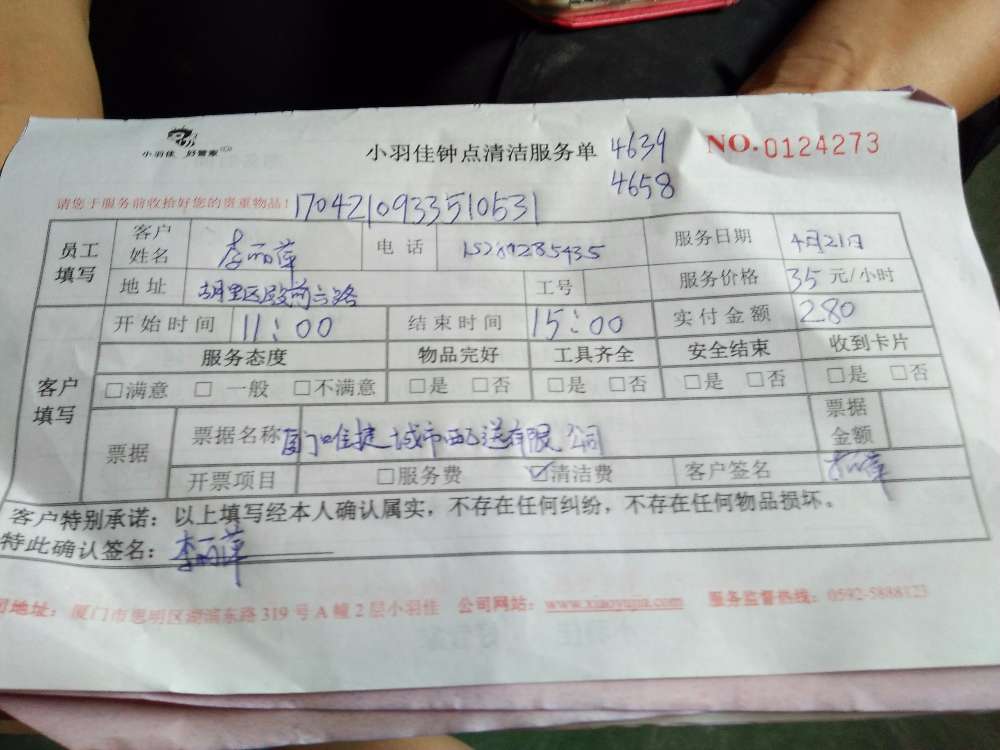 小羽佳 好管家
小羽佳钟点清洁服务单 4639 NO.0124273
4658
请您于服务前收拾好您的贵重物品! 170421093351053​1
员工填写 客户姓名 李丽萍 电话 15289285435 服务日期 4月21日
地址 湖里区殿前六路 工号 服务价格 35 元/小时
客户填写 开始时间 11:00 结束时间 15:00 实付金额 280
服务态度 物品完好 工具齐全 安全结束 收到卡片
□满意 □一般 □不满意 □是 □否 □是 □否 □是 □否 □是 □否
票据 票据名称 厦门唯捷城市配送有限公司 票据金额
开票项目 □服务费 ☑清洁费 客户签名 李丽萍
客户特别承诺:以上填写经本人确认属实,不存在任何纠纷,不存在任何物品损坏。
特此确认签名:李丽萍
司地址:厦门市思明区湖滨东路 319 号 A 幢 2 层小羽佳 公司网站:www.xiaoyujia.com 服务监督热线:0592-5888123